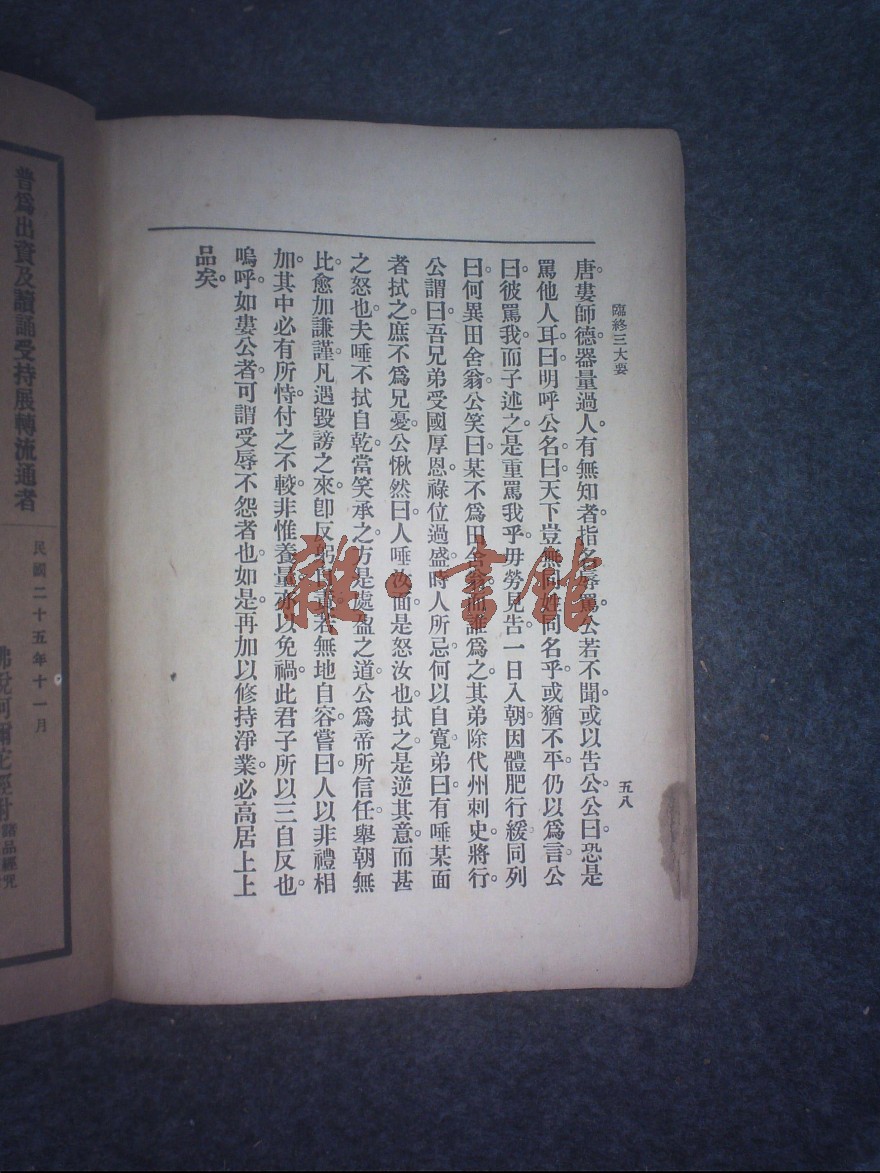 臨終三大要
五八
唐婁師德器量過人。有無知者。指名辱罵。公若不聞。或以告公。公曰。恐是
罵他人耳。曰。明呼公名。曰。天下豈無同姓同名乎。或猶不平。仍以爲言。公
曰。彼罵我。而子述之。是重罵我乎。毋勞見告。一日入朝。因體肥行緩。同列
曰。何異田舍翁。公笑曰。某不爲田舍翁。而誰爲之。其弟除代州刺史將行。
公謂曰。吾兄弟受國厚恩。祿位過盛。時人所忌。何以自寬。弟曰。有唾某面
者拭之。庶不爲兄憂。公愀然曰。人唾汝面。是怒汝也。拭之。是逆其意。而甚
之怒也。夫唾不拭自乾。當笑承之。方是處盈之道。公爲帝所信任。舉朝無
比。愈加謙謹。凡遇毀謗之來。卽反躬自責。若無地自容。嘗曰。人以非禮相
加。其中必有所恃。付之不較。非惟養量。亦以免禍。此君子所以三自反也。
嗚呼。如婁公者。可謂受辱不怨者也。如是再加以修持淨業。必高居上上
品矣。
普爲出資及讀誦受持展轉流通者
民國二十五年十一月
佛說阿彌陀經附
諸品經咒
毅·書館